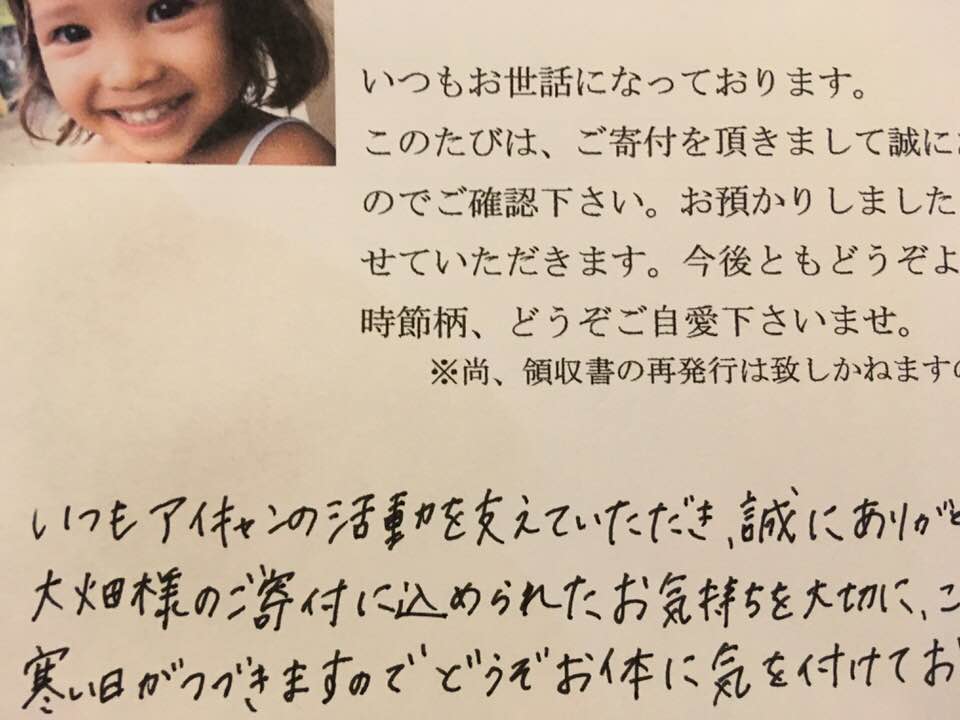 いつもお世話になっております。
このたびは、ご寄付を頂きまして誠に
のでご確認下さい。お預かりしました
せていただきます。今後ともどうぞよ
時節柄、どうぞご自愛下さいませ。
※尚、領収書の再発行は致しかねますの
いつもアイキャンの活動を支えていただき、誠にありがと
大畑様のご寄付に込められたお気持ちを大切に、こ
寒い日がつづきますのでどうぞお体に気を付けてお